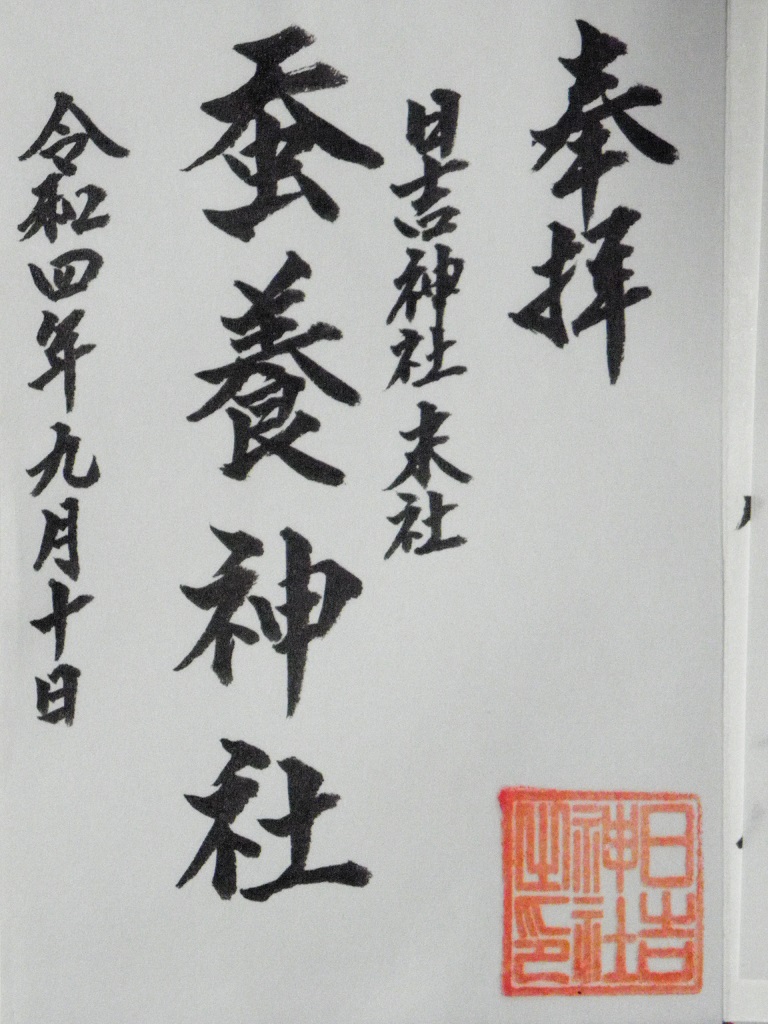 奉拝
日吉神社 末社
蚕養神社
令和四年九月十日
日吉神社之印